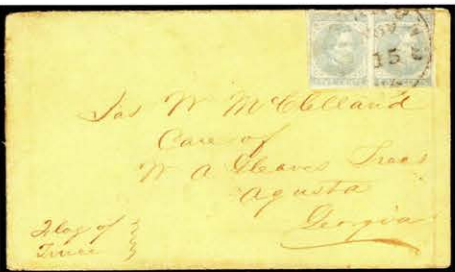 15
Jas W McClelland
Care of
W A Gleaves Treas
Agusta
Georgia
Flag of
Truce